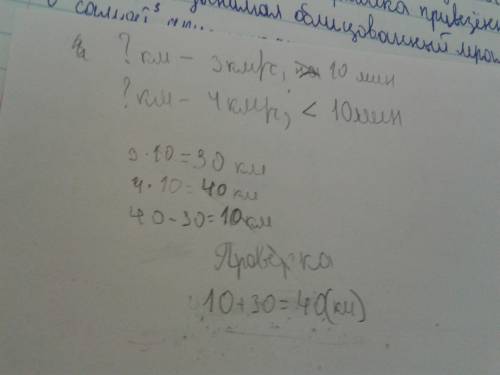 облицованный
? км - 3 км/с, 10 мин
? км - 4 км/с, < 10 мин
3·10=30 км
4·10=40 км
40-30=10 км
Проверка
10+30=40(км)